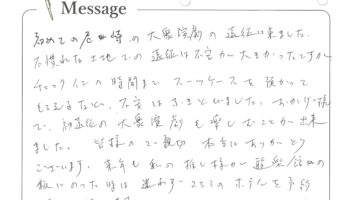 Message
初めての尼崎の大衆演劇の遠征に来ました。
不慣れな土地での遠征は不安が大きかったですが
チェックインの時間までスーツケースを預かって
もらえるなど、不安はさっといました。おかげ様
で、初遠征の大衆演劇も楽しむことが出来
ました。皆様のご親切本当にありがとう
ございます。来年も私の推し様が
板にのった時は迷わずこちらのホテルを予約